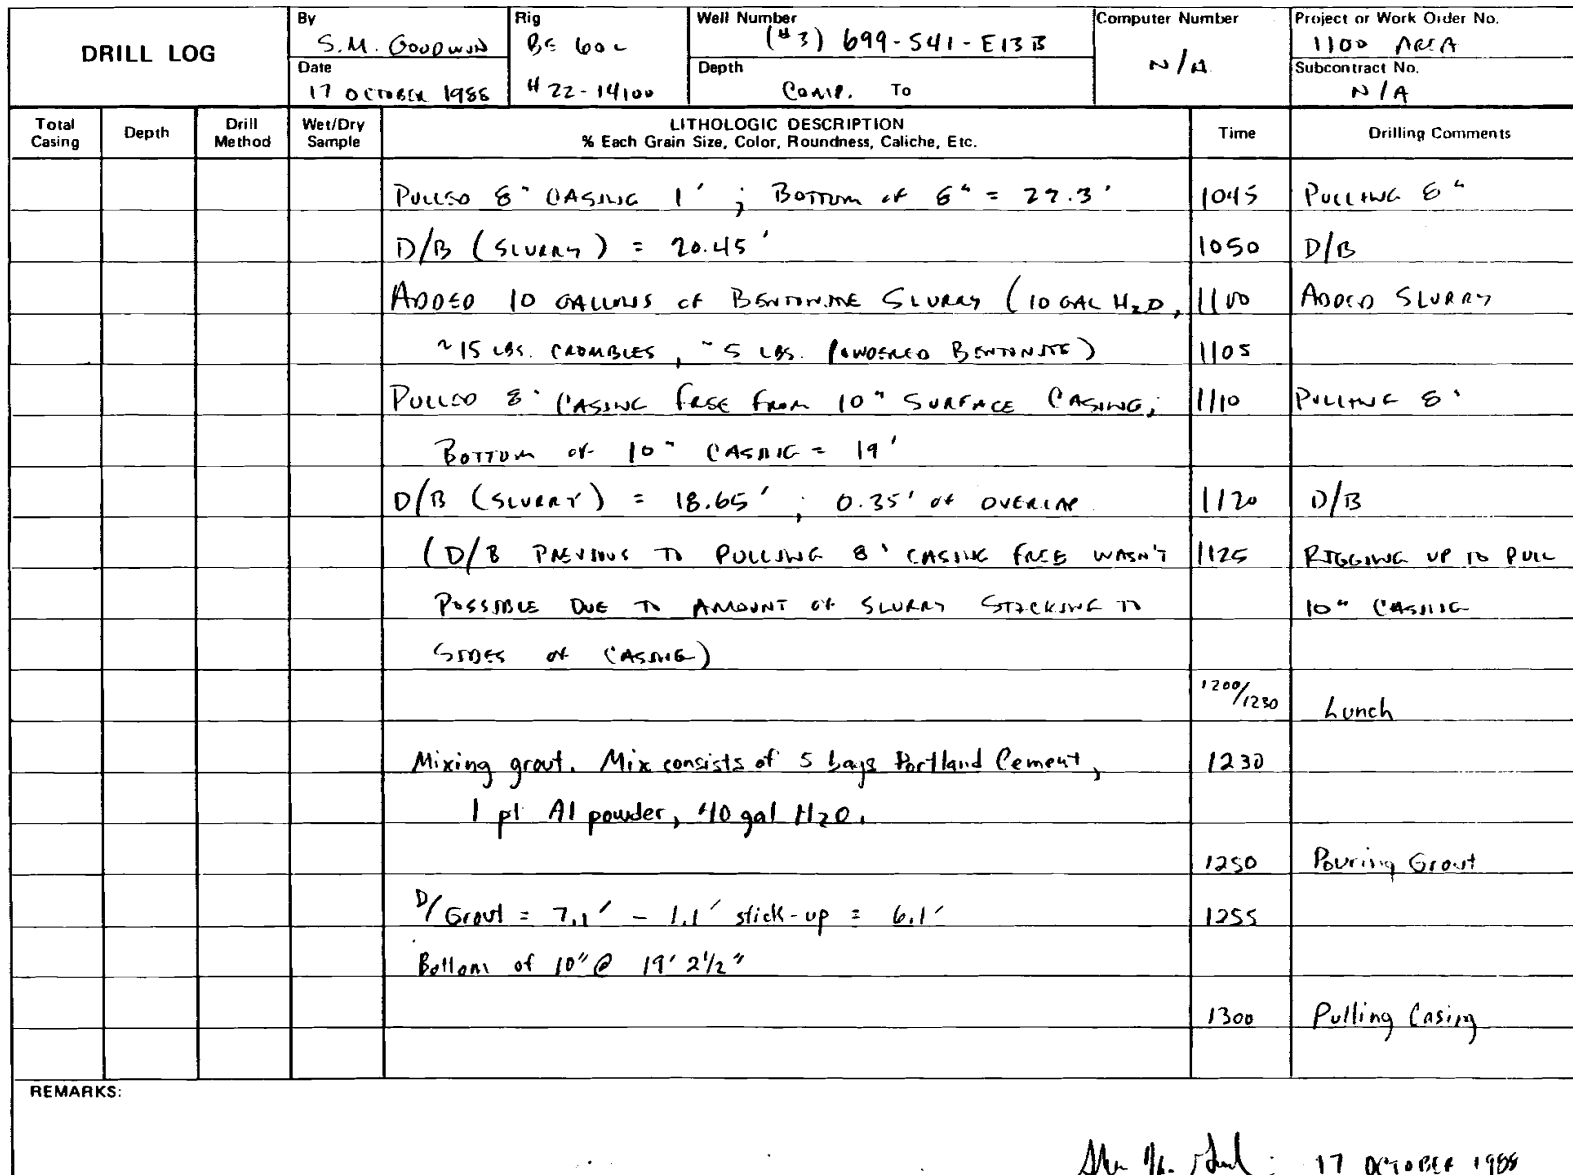 DRILL LOG
By
S.M. GOODWIN
Date
17 OCTOBER 1988
Rig
BE 60L
# 22-14100
Well Number
(#3) 699-S41-E13B
Depth
COMP. To
Computer Number
N/A
Project or Work Order No.
1100 AREA
Subcontract No.
N/A
Total Casing
Depth
Drill Method
Wet/Dry Sample
LITHOLOGIC DESCRIPTION
% Each Grain Size, Color, Roundness, Caliche, Etc.
Time
Drilling Comments
PULLED 8" CASING 1' ; BOTTOM OF 8" = 27.3' 1045 PULLING 8"
D/B (SLURRY) = 20.45' 1050 D/B
ADDED 10 GALLONS OF BENTONITE SLURRY (10 GAL H2O, 1100 ADDED SLURRY
~15 LBS. CRUMBLES, ~5 LBS. POWDERED BENTONITE) 1105
PULLED 8" CASING FREE FROM 10" SURFACE CASING; 1110 PULLING 8"
BOTTOM OF 10" CASING = 19'
D/B (SLURRY) = 18.65' ; 0.35' OF OVERLAP 1120 D/B
(D/B PREVIOUS TO PULLING 8" CASING FREE WASN'T 1125 RIGGING UP TO PULL
POSSIBLE DUE TO AMOUNT OF SLURRY STICKING TO 10" CASING
SIDES OF CASING)
1200/1230 Lunch
Mixing grout. Mix consists of 5 bags Portland Cement, 1230
1 pt Al powder, ~10 gal H2O.
1250 Pouring Grout
D/Grout = 7.1' - 1.1' stick-up = 6.1' 1255
Bottom of 10" @ 19' 2 1/2"
1300 Pulling Casing
REMARKS:
17 OCTOBER 1988